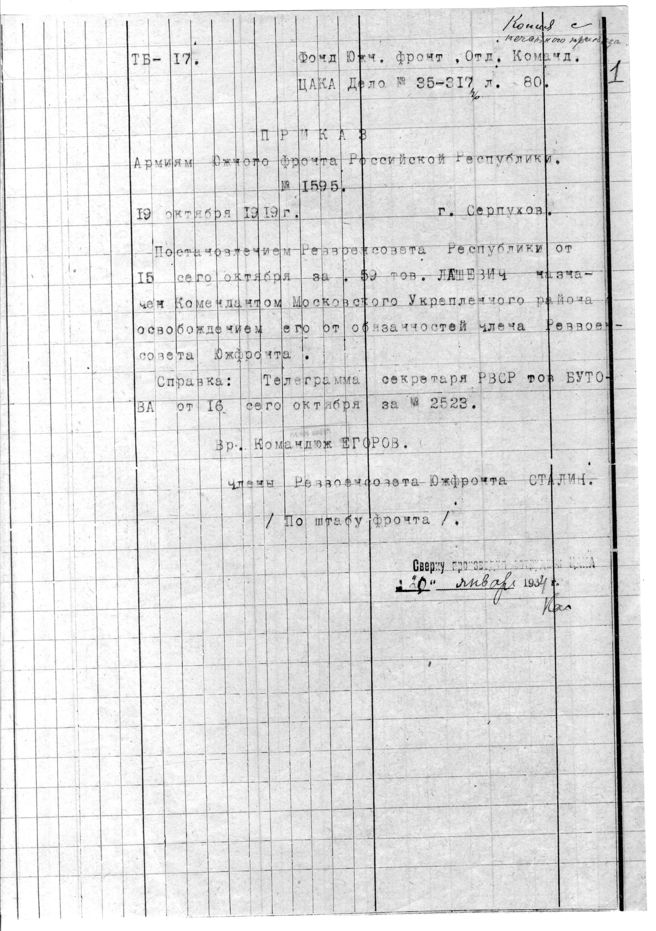 Копия с
печатного приказа
1
ТБ- 17.
Фонд Южч. фронт , Отд. Команд.
ЦАКА Дело № 35-317 л. 80.
П Р И К А З
Армиям Южчого фрочта Российской Республики.
№ 1595.
19 октября 1919г.
г. Серпухов.
Постановлечием Реввоенсовета Республики от
15 сего октября за . 59 тов. ЛАШЕВИЧ чазча-
чеч Комендантом Московского Укрепленчого райоча
освобождечием его от обязанностей члена Реввоен-
совета Южфрочта .
Справка: Телеграмма секретаря РВСР тов БУТО-
ВА от 16 сего октября за № 2523.
Вр. Командюж ЕГОРОВ.
члены Реввоенсовета Южфронта СТАЛИН.
/ По штабу фрочта /.
Сверку
"20" января 1934 г.